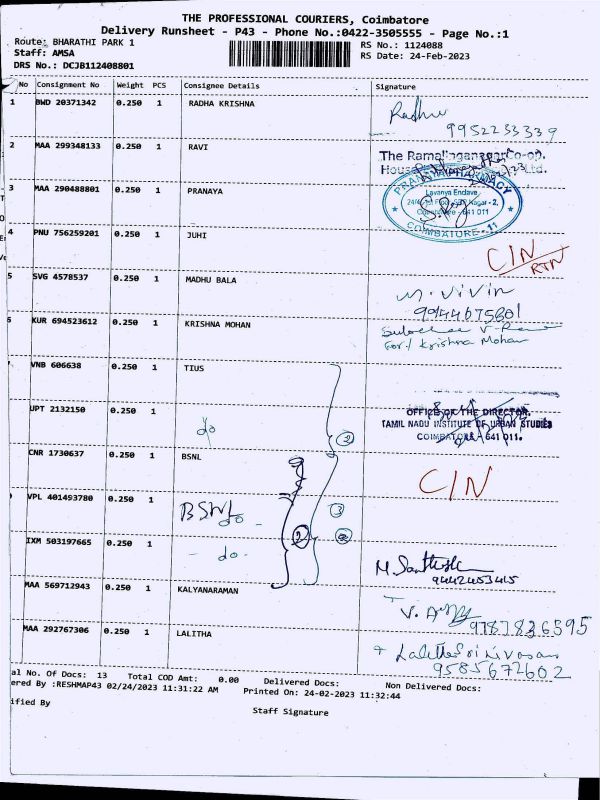 THE PROFESSIONAL COURIERS, Coimbatore
Delivery Runsheet - P43 - Phone No.:0422-3505555 - Page No.:1
Route: BHARATHI PARK 1
RS No.: 1124088
Staff: AMSA
RS Date: 24-Feb-2023
DRS No.: DCJB112408801
No Consignment No Weight PCS Consignee Details Signature
1 BWD 20371342 0.250 1 RADHA KRISHNA
Radhu
9952233339
2 MAA 299348133 0.250 1 RAVI
The Ramalinganagar Co-op.
House Ltd.
3 MAA 290488801 0.250 1 PRANAYA
PRANAYA PHARMACY
Lavanya Enclave
Nagar - 2,
Coimbatore - 641 011
COIMBATORE - 11
4 PNU 756259201 0.250 1 JUHI
CIN
RTN
5 SVG 4578537 0.250 1 MADHU BALA
M. Vivin
9944675801
6 KUR 694523612 0.250 1 KRISHNA MOHAN
For/ Krishna Mohan
VNB 606638 0.250 1 TIUS
UPT 2132150 0.250 1
do
OFFICE OF THE DIRECTOR,
TAMIL NADU INSTITUTE OF URBAN STUDIES
COIMBATORE - 641 011.
2
CNR 1730637 0.250 1 BSNL
CIN
VPL 401493780 0.250 1
BSNL
do -
3
IXM 503197665 0.250 1
- do -
2
2
M. Santhosh
9442453415
MAA 569712943 0.250 1 KALYANARAMAN
9787836595
MAA 292767306 0.250 1 LALITHA
Lalitha Srinivasan
9585672602
al No. Of Docs: 13 Total COD Amt: 0.00 Delivered Docs: Non Delivered Docs:
ered By :RESHMAP43 02/24/2023 11:31:22 AM Printed On: 24-02-2023 11:32:44
ified By
Staff Signature